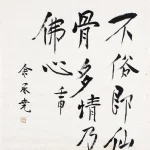 不俗即仙
骨多情乃
佛心 壬申